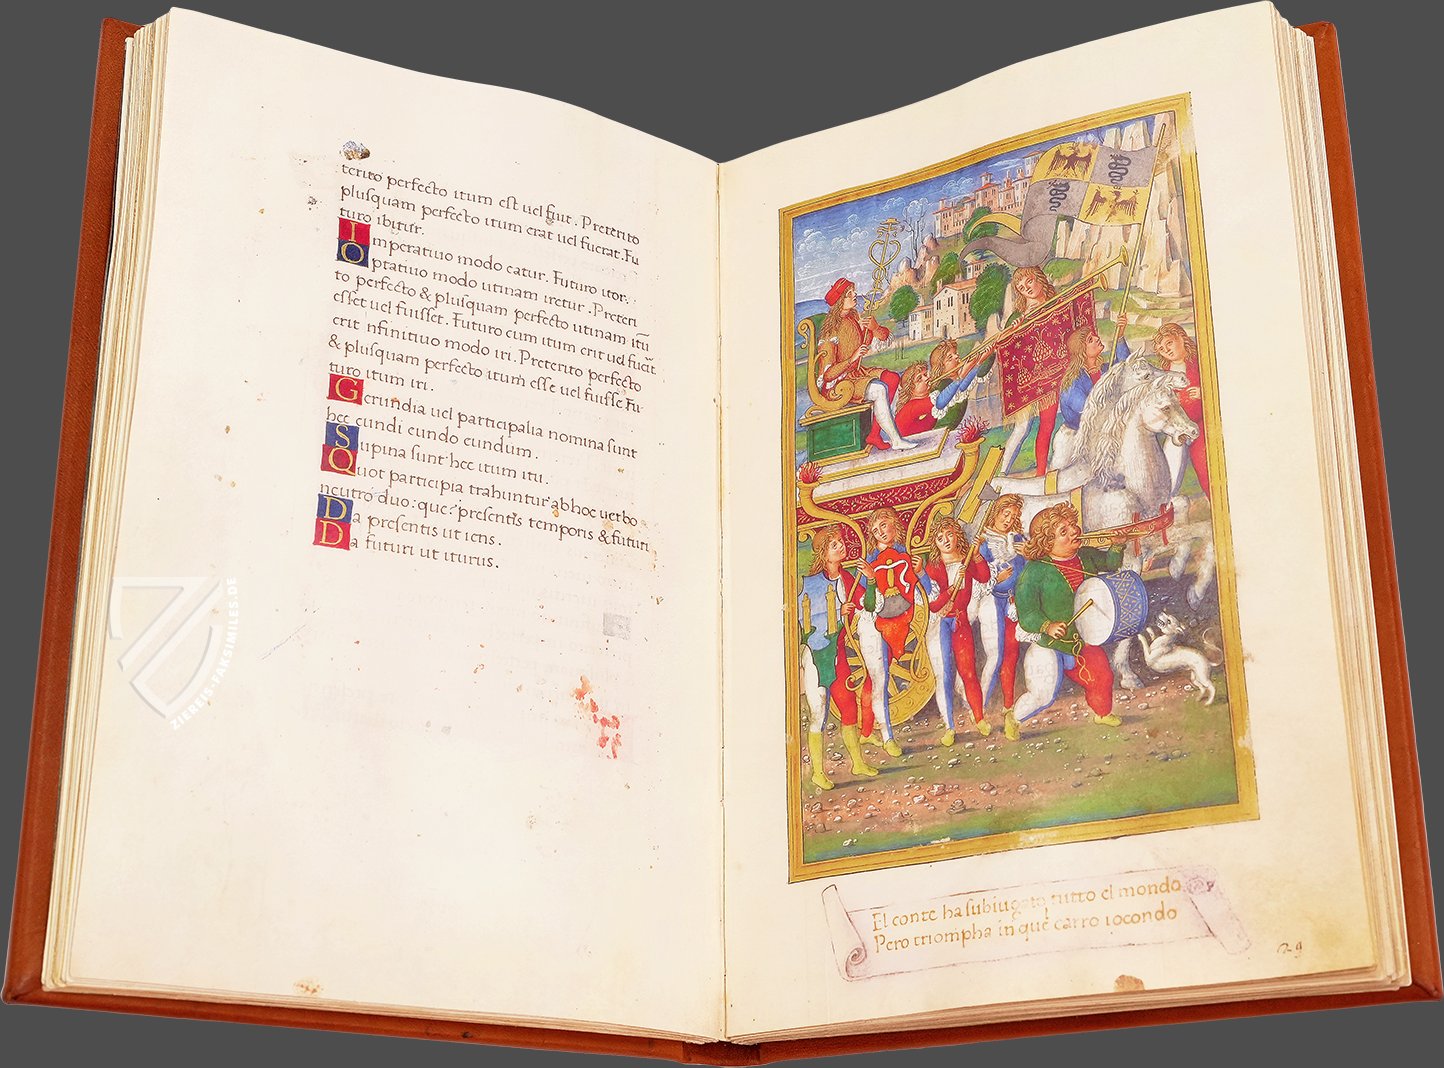 terito perfecto itum est uel fuit. Preterito
plusquam perfecto itum erat uel fuerat. Fu
turo ibitur.
Imperatiuo modo eatur. Futuro itor.
Optatiuo modo utinam iretur. Preteri
to perfecto & plusquam perfecto utinam itū
esset uel fuisset. Futuro cum itum erit uel fuerit
erit nfinitiuo modo iri. Preterito perfecto
& plusquam perfecto itum esse uel fuisse Fu
turo itum iri.
Gerundia uel participalia nomina sunt
hec eundi eundo eundum.
Supina sunt hec itum itu.
Quot participia trahuntur ab hoc uerbo
neutro duo: que? presentis temporis & futuri
Da presentis ut iens.
Da futuri ut iturus.
El conte ha subiugato tutto el mondo
Pero triompha in que carro iocondo
ZIEREIS-FAKSIMILES.DE